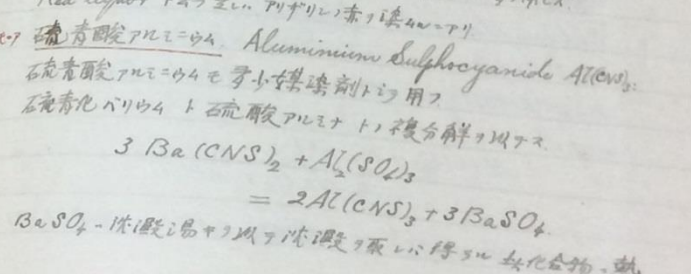 アリザリン赤ヲ染ムルニアリ
硫青酸アルミニウム. Aluminium Sulphocyanide Al(CNS)3.
硫青酸アルミニウムモ多少媒染剤トシテ用フ
硫青化バリウムト硫酸アルミナトノ複分解ヲ以テス
3 Ba(CNS)2 + Al2(SO4)3
= 2Al(CNS)3 + 3BaSO4.
BaSO4 沈澱 沈澱ヲ 得ル 化合物